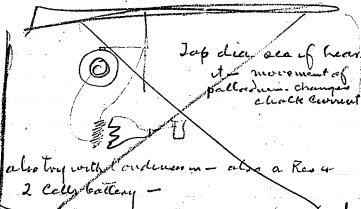 Tap dia. see if hear
it — movement of
palladium changes
chalk current
also try with condenser — also a Res &
2 Cells battery —